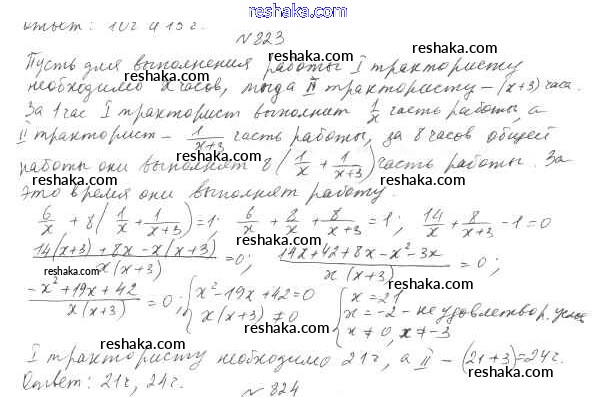 reshaka.com
ответ: 10 г и 15 г.
№ 823
Пусть для выполнения работы I трактористу
необходимо x часов, тогда II трактористу – (x+3) часа.
За 1 час I тракторист выполнит 1/x часть работы, а
II тракторист – 1/(x+3) часть работы, за 8 часов общей
работы они выполнят 8(1/x + 1/(x+3)) часть работы. За
это время они выполнят работу.
6/x + 8(1/x + 1/(x+3)) = 1; 6/x + 8/x + 8/(x+3) = 1; 14/x + 8/(x+3) - 1 = 0
(14(x+3) + 8x - x(x+3))/(x(x+3)) = 0; (14x + 42 + 8x - x² - 3x)/(x(x+3)) = 0;
(-x² + 19x + 42)/(x(x+3)) = 0; { x² - 19x + 42 = 0 { x = 21
x(x+3) ≠ 0 x = -2 - не удовлетвор. услов
x ≠ 0, x ≠ -3
I трактористу необходимо 21 ч, а II – (21+3) = 24 г.
Ответ: 21 ч, 24 г.
№ 824
reshaka.com
reshaka.com
reshaka.com
reshaka.com
reshaka.com
reshaka.com
reshaka.com
reshaka.com
reshaka.com
reshaka.com
reshaka.com
reshaka.com
reshaka.com